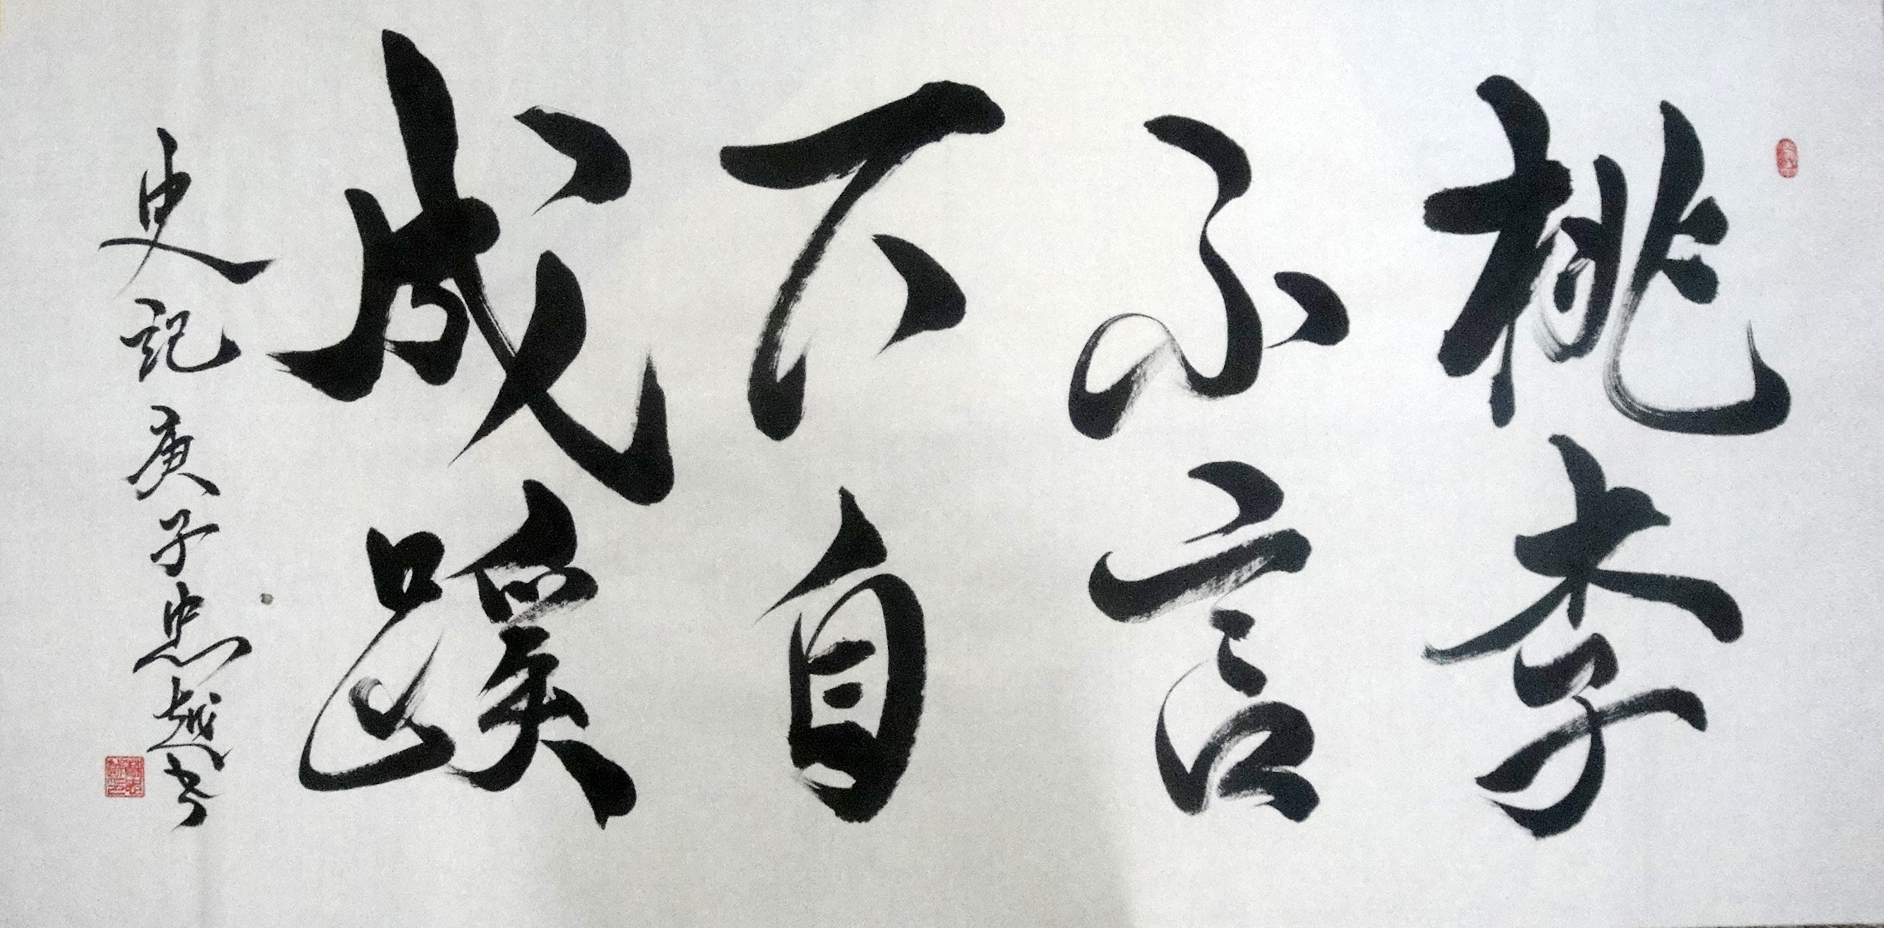 桃李
不言
下自
成蹊
史記庚子忠越书